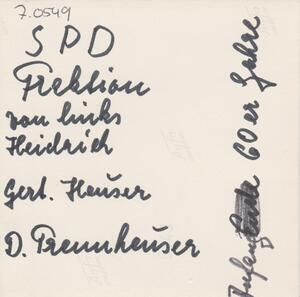 7.0549
SPD
Fraktion
von links
Heidrich
Gert. Hauser
D. Trennheuser
Anfang 60er Jahre